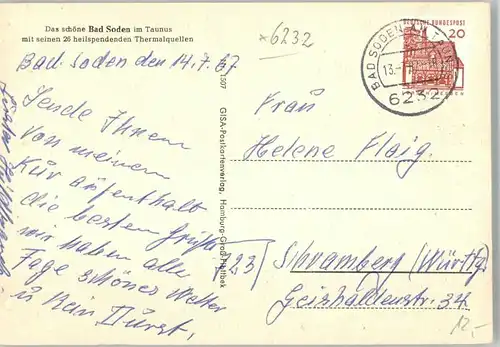 Das schöne Bad Soden im Taunus
mit seinen 26 heilspendenden Thermalquellen
Bad. Soden den 14.7.67
Sende Ihnen
von meinem
Kur aufenthalt
die besten Grüße
wir haben alle
Tage schönes Wetter
u kein Durst,
1507 GISA-Postkartenverlag, Hamburg-Groß Flottbek
x6232
DEUTSCHE BUNDESPOST
20
BAD SODEN
13.-7
6232
Frau
Helene Flaig.
723) Schramberg (Württg.
Geishaldenstr. 34
12,-